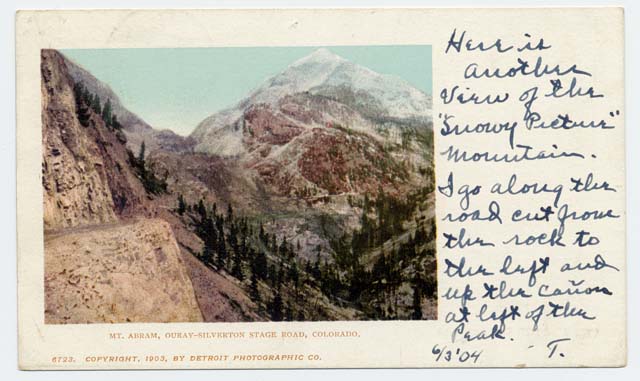 Here is
another
View of the
"Snowy Picture"
Mountain.
I go along the
road cut from
the rock to
the left and
up the cañon
at left of the
Peak.
6/3 '04 T.
MT. ABRAM, OURAY-SILVERTON STAGE ROAD, COLORADO.
6723. COPYRIGHT, 1903, BY DETROIT PHOTOGRAPHIC CO.